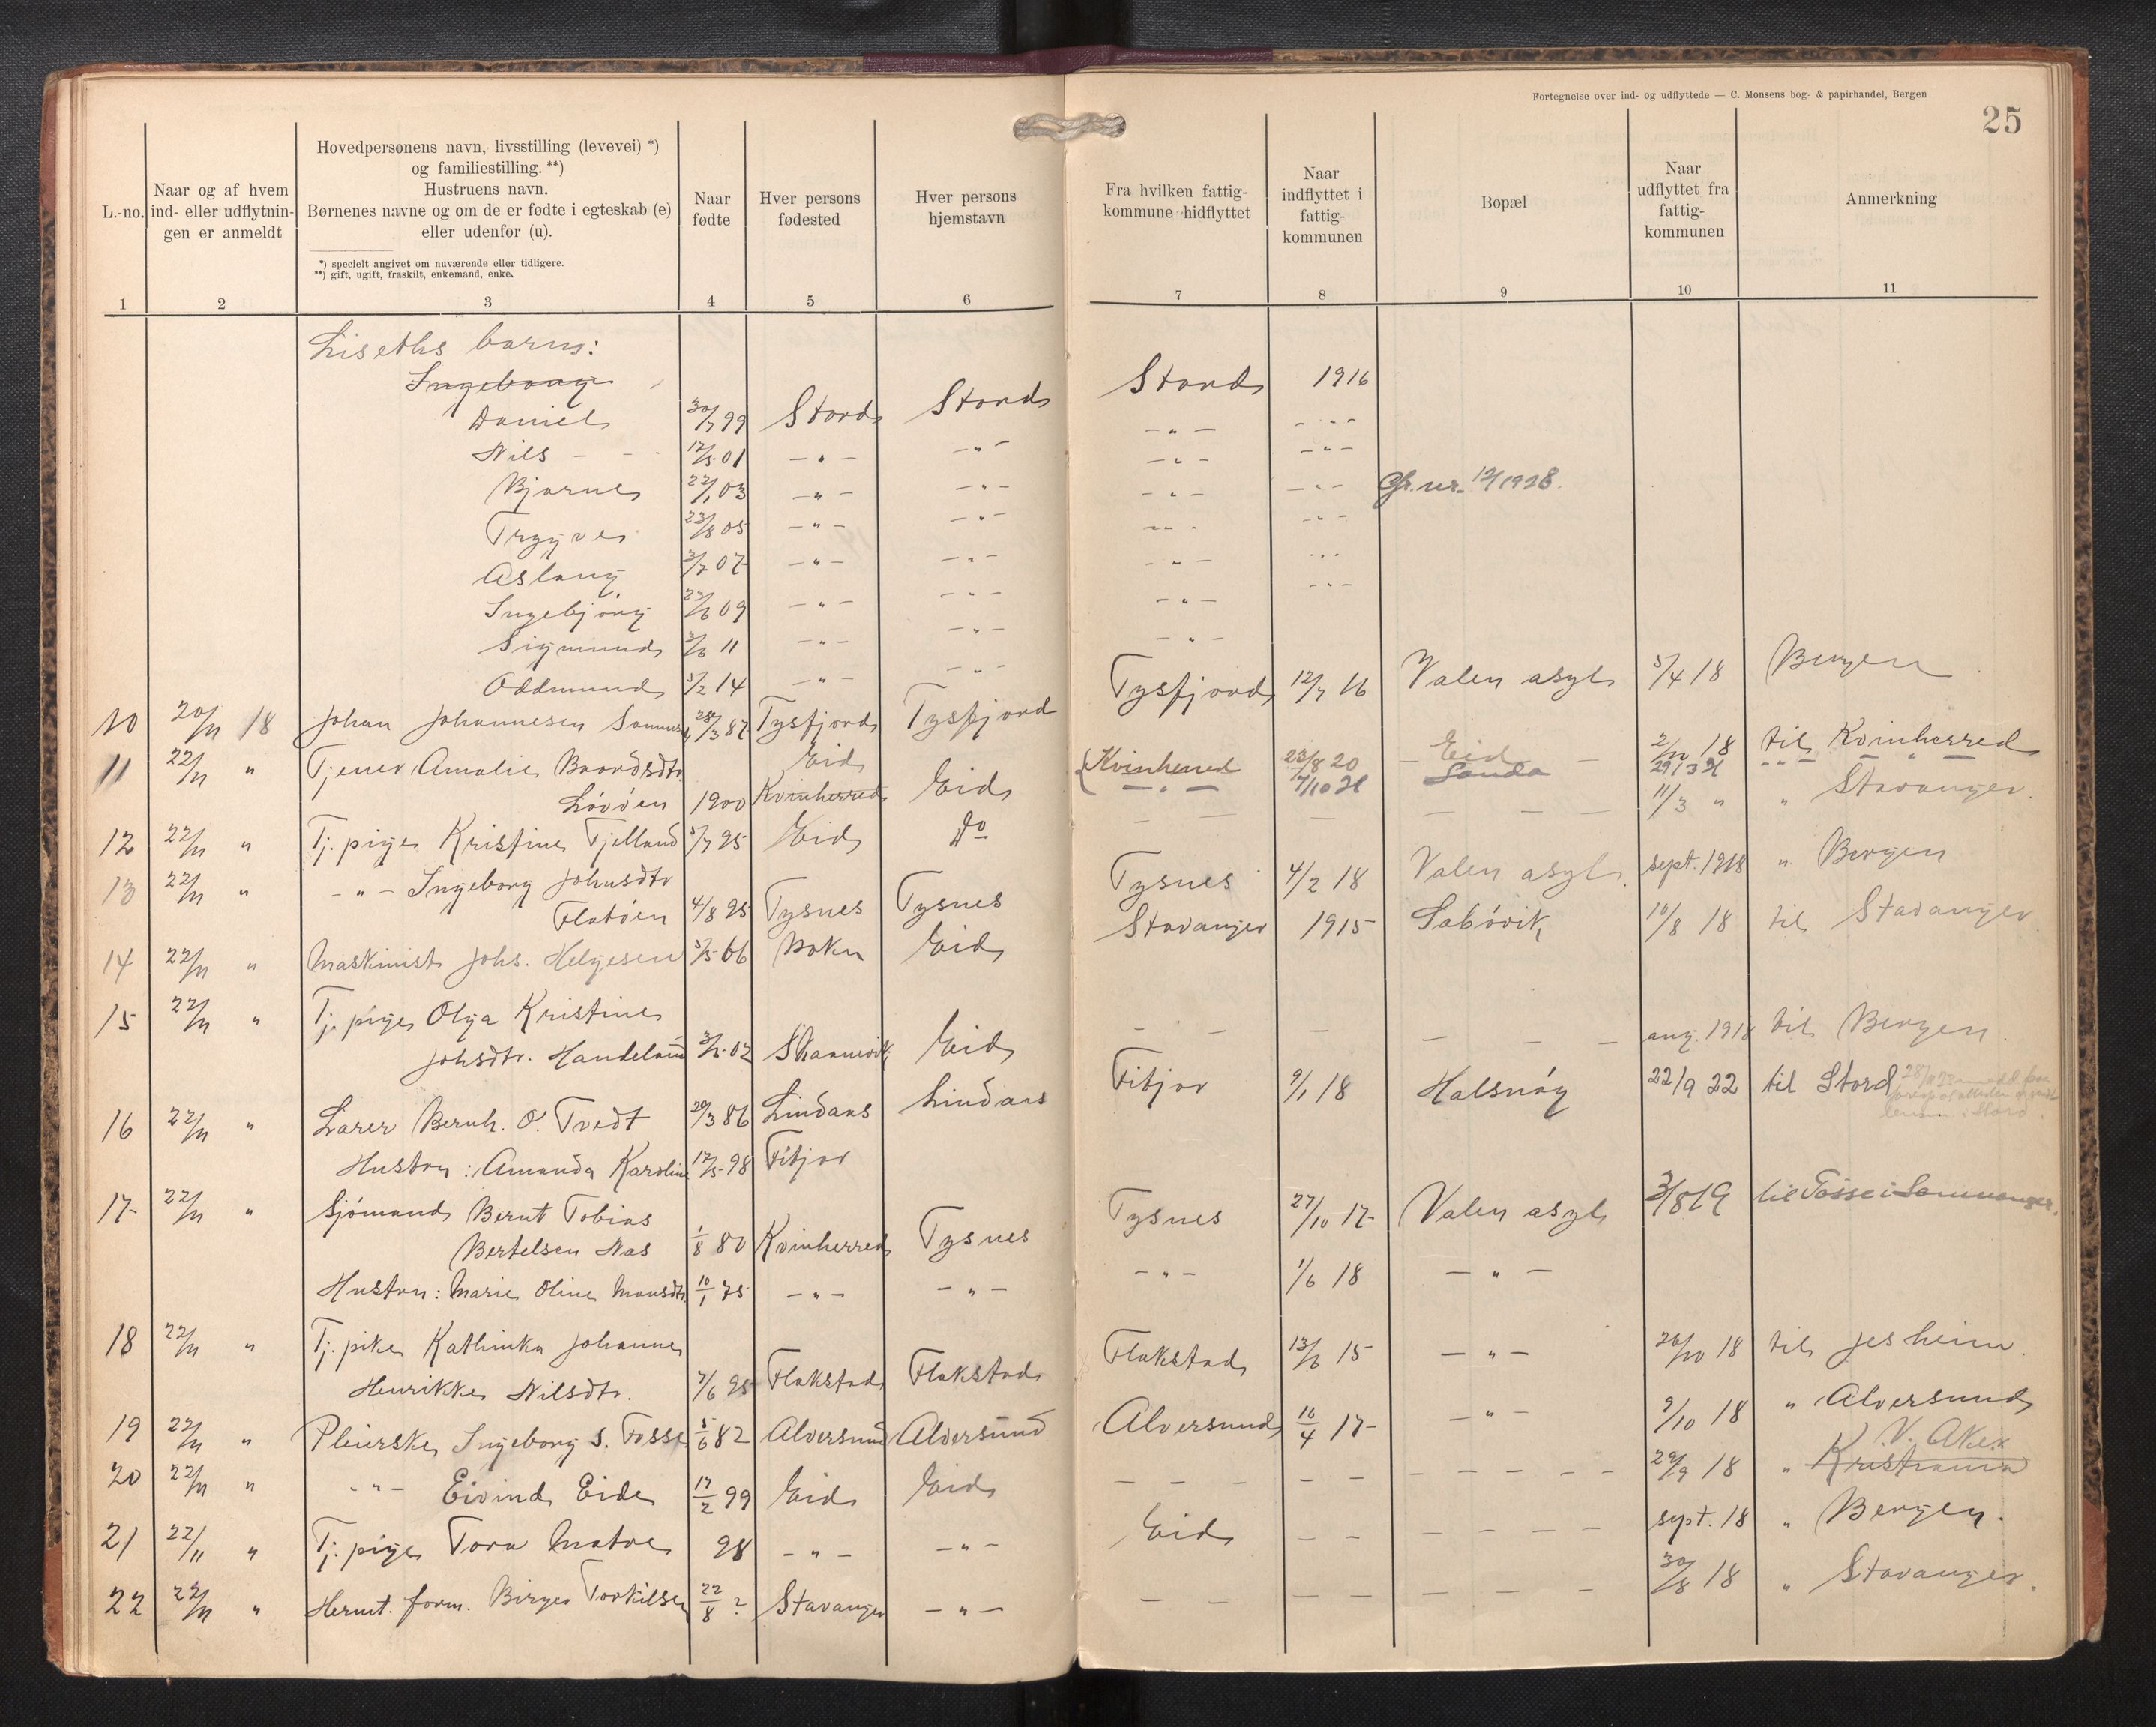 Fortegnelse over ind- og udflyttede — C. Monsens bog- & papirhandel, Bergen
25
L.-no.
Naar og af hvem ind- eller udflytnin- gen er anmeldt
Hovedpersonens navn, livsstilling (levevei) *)
og familiestilling. **)
Hustruens navn.
Børnenes navne og om de er fødte i egteskab (e)
eller udenfor (u).
*) specielt angivet om nuværende eller tidligere.
**) gift, ugift, fraskilt, enkemand, enke.
Naar fødte
Hver persons fødested
Hver persons hjemstavn
Fra hvilken fattig- kommune hidflyttet
Naar indflyttet i fattig- kommunen
Bopæl
Naar udflyttet fra fattig- kommunen
Anmerkning
1 2 3 4 5 6 7 8 9 10 11
Liseths barn:
Ingeborg Stord 1916
Daniel 30/7 99 Stord Stord -"- -"-
Nils - - 12/5 01 -"- -"- -"- -"-
Bjarne 22/1 03 -"- -"- -"- -"- 12/1928.
Trygve 23/8 05 -"- -"- -"- -"-
Aslaug 3/7 07 -"- -"- -"- -"-
Ingebjörg 23/6 09 -"- -"- -"- -"-
Sigmund 3/6 11 -"- -"- -"-
Oddmund 5/2 14 -"- -"-
10 20/11 18 Johan Johannesen 28/3 87 Tysfjord Tysfjord Tysfjord 12/7 16 Valen asyl 5/4 18 Bergen
11 22/11 " Tjener Amalie Baardsdtr Eid Kvinherred 23/8 20 Eid 2/10 18 til Kvinherred
Lövöen 1900 Kvinherred Eid -"- 7/10 21 Sanda 29/3 21 " " "
12 22/11 " Tj. pige Kristine Fjelland 5/7 95 Eid Do - - - - - 11/3 " " Stavanger.
13 22/11 " -"- Ingeborg Johnsdtr
Flatöen 4/8 95 Tysnes Tysnes Tysnes 4/2 18 Valen asyl. sept. 1918 " Bergen
14 22/11 " Maskinist Johs. Helgesen 5/5 66 Bokn Eid Stavanger 1915 Sabövik 10/8 18 til Stavanger
15 22/11 " Tj. pige Olga Kristine
Johsdtr. Handeland 3/5 02 Skaanevik Eid - - - - - - aug. 1918 til Bergen.
16 22/11 " Lärer Bernh. O. Tvedt 29/3 86 Lindaas Lindaas Fitjar 9/1 18 Halsnöy 22/9 22 til Stord
Hustru: Amanda Karoline 12/5 98 Fitjar
17 22/11 " Sjömand Bernt Tobias
Bertelsen Nas 1/8 80 Kvinherred Tysnes Tysnes 27/10 17 Valen asyl 3/8 19 til Tösse i Samnanger.
Hustru: Marie Oline Monsdtr. 10/1 75 -"- -"- -"- 1/6 18 -"-
18 22/11 " Tj. pike Kathinka Johanne
Henrikke Nilsdtr. 7/6 95 Flakstad Flakstad Flakstad 13/6 15 -"- 26/10 18 til Jesheim.
19 22/11 " Pleierske Ingeborg S. Fosse 5/6 82 Alversund Alversund Alversund 16/4 17 -"- 9/10 18 " Alversund
V. Aker
20 22/11 " -"- Eivind Eide 17/2 99 Eid Eid - - - - - - - - 29/9 18 " Kristiania
21 22/11 " Tj. pige Tora Matre 98 -"- -"- Eid - - - - - - sept. 18 " Bergen.
22 22/11 " Hermt. form. Birger Torkilsen 22/8 ? Stavanger -"- - - - - - - - - 30/8 18 " Stavanger.